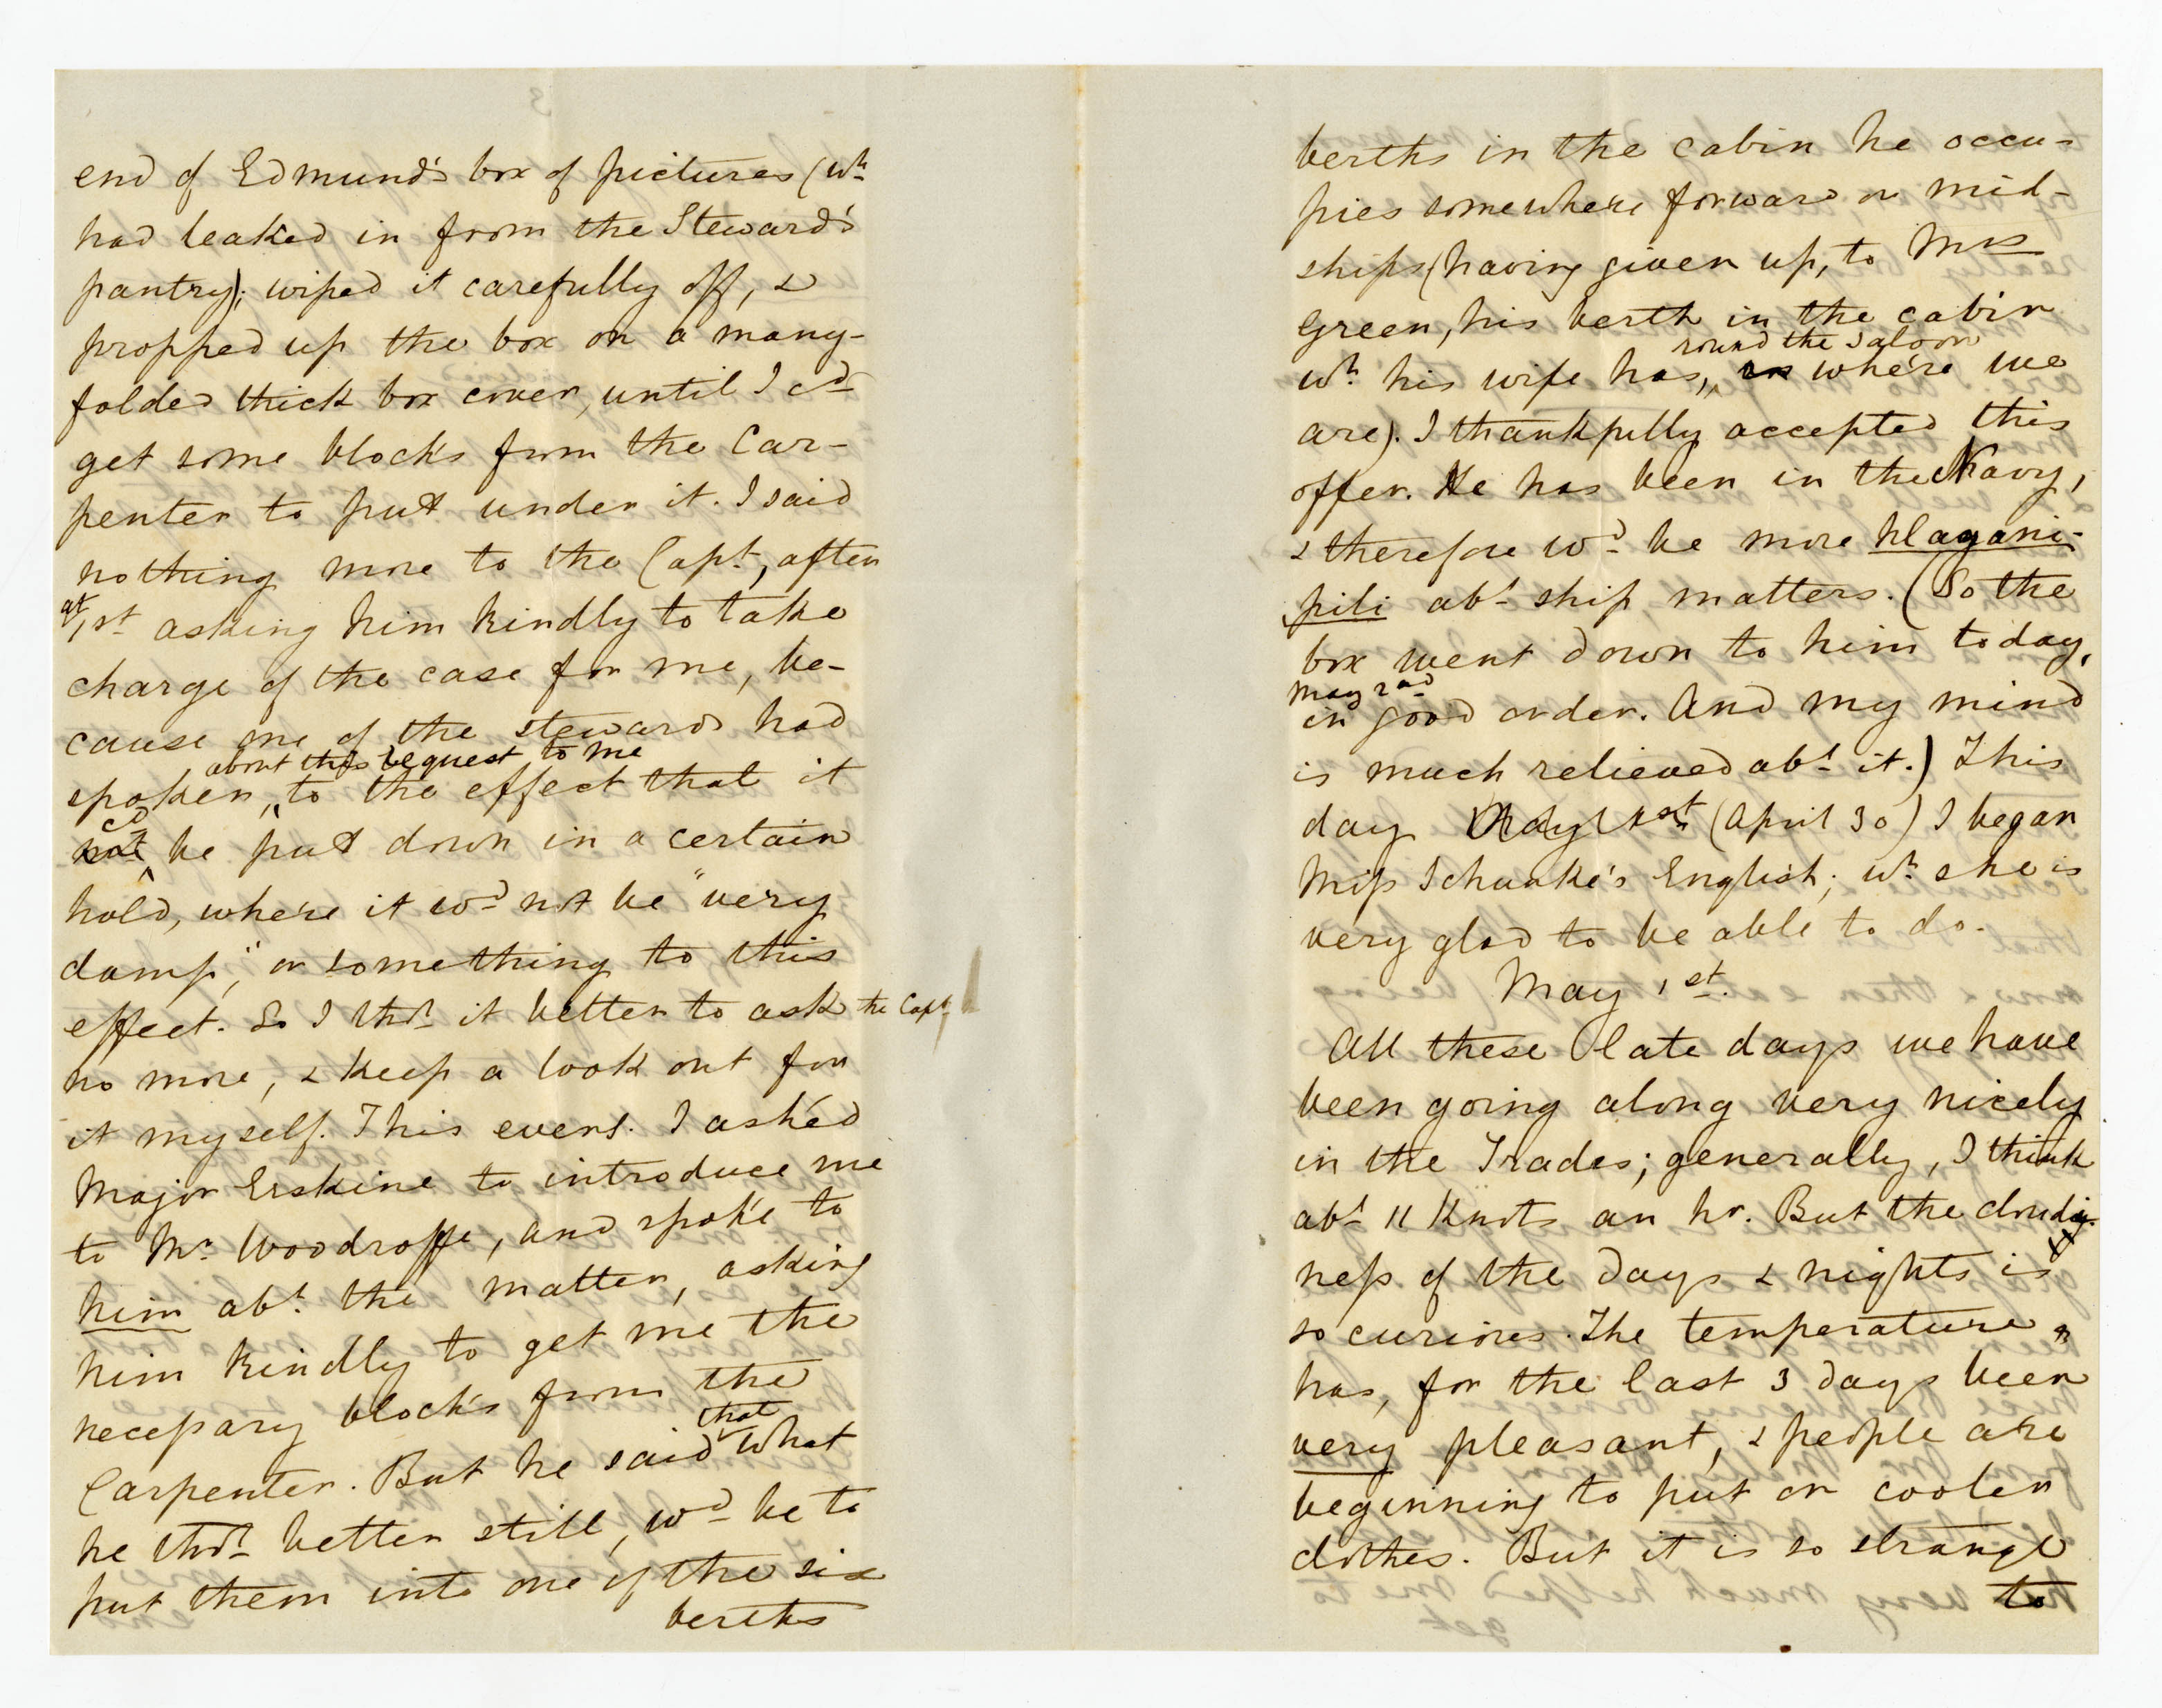 end of Edmund's box of pictures (wh
had leaked in from the Steward's
pantry); wiped it carefully off, &
propped up the box on a many-
folded thick box cover, until I cd
get some blocks from the Car-
penter to put under it. I said
nothing more to the Capt., after
at 1st asking him kindly to take
charge of the case for me, be-
cause one of the stewards had
about this request to me
spoken, to the effect that it
cd
not be put down in a certain
hold, where it wd not be "very
damp," or something to this
effect. So I tht it better to ask the Capt.
no more, & keep a look out for
it myself. This eveng. I asked
Major Erskine to introduce me
to Mr. Woodroffe, and spoke to
him abt. the matter, asking
him kindly to get me the
necessary blocks from the
that
Carpenter. But he said what
he tht better still, wd be to
put them into one of the six
berths
berths in the cabin he occu-
pies somewhere forward or mid-
ships (having given up, to Mrs
Green, his berth in the cabin
round the saloon
wh. his wife has, where we
are). I thankfully accepted this
offer. He has been in the Navy,
& therefore wd be more
pili abt ship matters. (So the
box went down to him today,
May 2nd
in good order. And my mind
is much relieved abt it.) This
day May 1st (April 30) I began
Miss Schunke's English; wh. she is
very glad to be able to do.
May 1st.
All these late days we have
been going along very nicely
in the Trades; generally, I think
abt 11 Knots an hr. But the cloudi-
ness of the days & nights is
so curious. The temperature
has, for the last 3 days been
very pleasant, & people are
beginning to put on cooler
clothes. But it is so strange
to